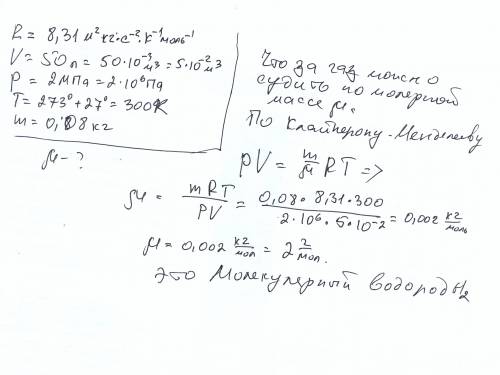 R = 8,31 м² кг · с⁻² · К⁻¹ моль⁻¹
V = 50 л = 50 · 10⁻³ м3 = 5 · 10⁻² м3
P = 2 МПа = 2 · 10⁶ Па
T = 273° + 27° = 300 К
m = 0,08 кг
μ - ?
Что за газ можно
судить по молерной
массе μ.
По Клайперону - Менделееву
pV = m/μ RT =>
μ = mRT/PV = 0,08 · 8,31 · 300 / 2 · 10⁶ · 5 · 10⁻² = 0,002 кг/моль
μ = 0,002 кг/мол = 2 г/мол.
это Молекулерный водород H₂